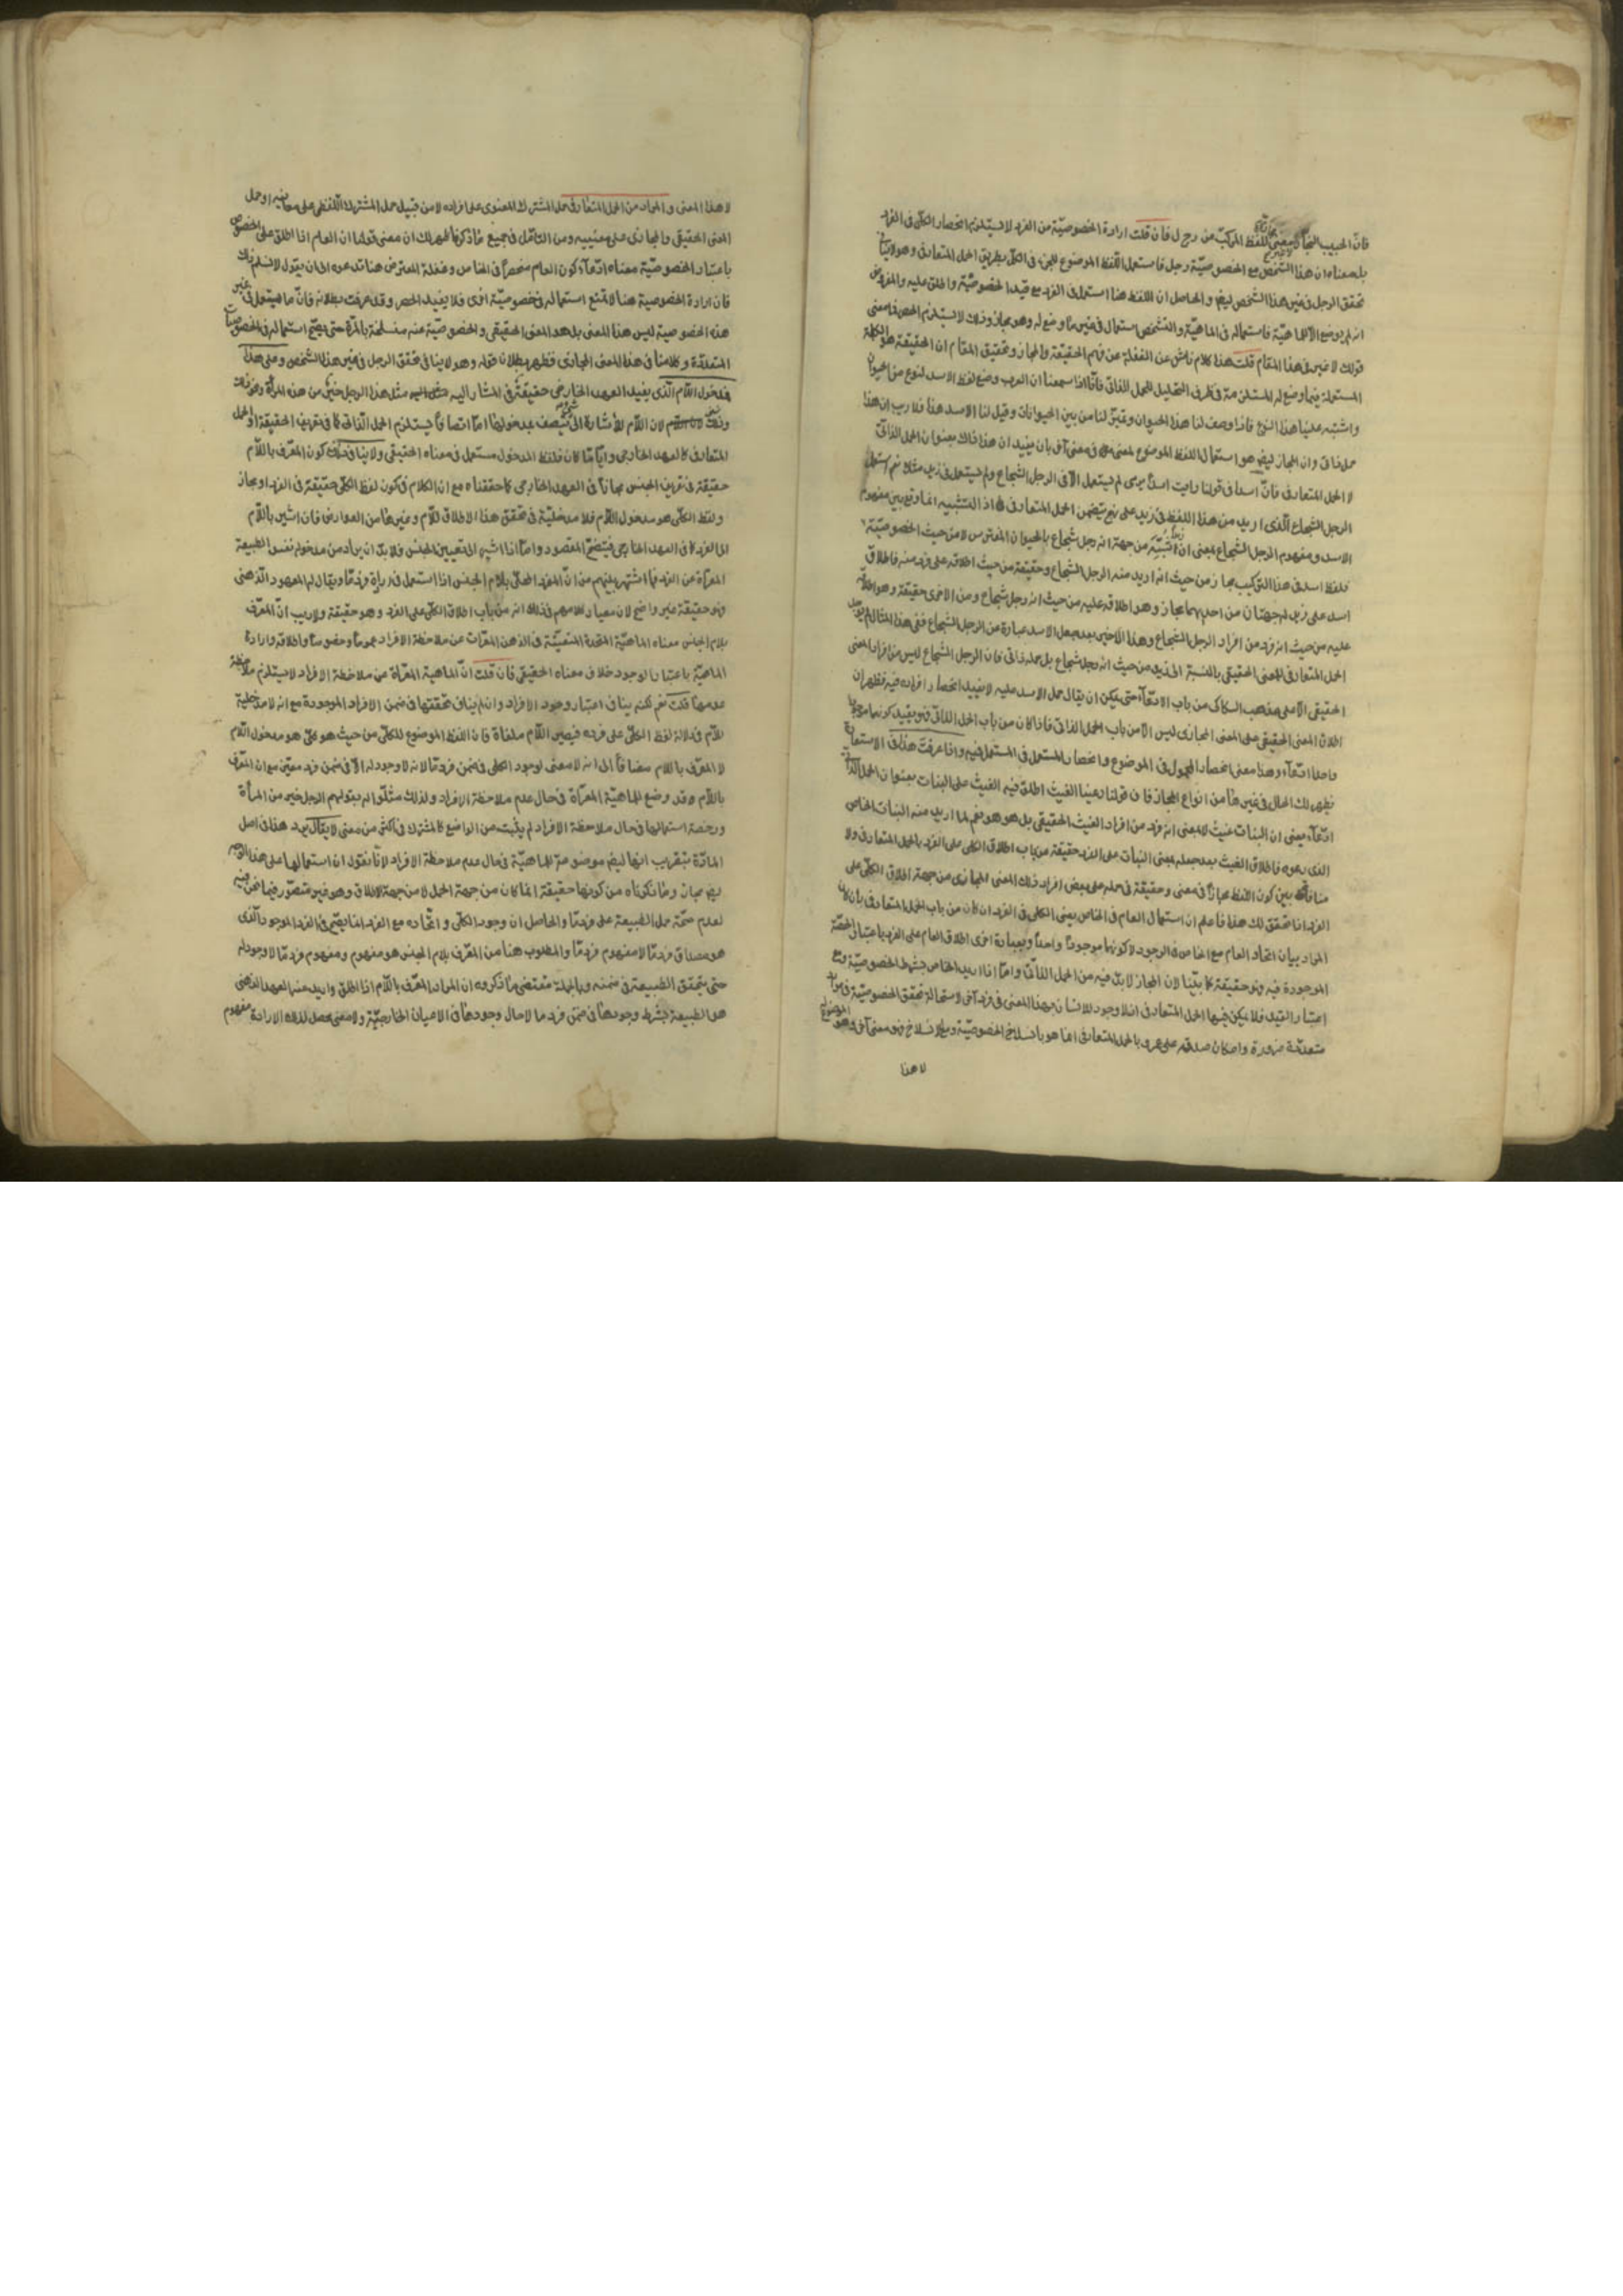 فانّ الحبيب النجار معنى اللفظ المركب من رجل فان قلت ارادة الخصوصيّة من الفرد لا يستلزم انحصار الكلّى فى الفرد
بل معناه ان هذا الشخص مع الخصوصيّة رجل فاستعمل اللّفظ الموضوع للجزء فى الكلّ بطريق الحمل المتعارف وهو لا ينافى
تحقق الرجل فى غير هذا الشخص ايضا والحاصل ان اللفظ هنا استعمل فى الفرد مع قيد الخصوصيّة واطلق عليه والمفروض
انه لم يوضع الّا للماهيّة فاستعماله فى الماهيّة والتشخص استعمال فى غير ما وضع له وهو مجاز وذلك لا يستلزم الحصر فما معنى
قولك لا غير فى هذا المقام قلت هذا كلام ناش عن الغفلة عن فهم الحقيقة والمجاز وتحقيق المقام ان الحقيقة هو الكلمة
المستعملة فيما وضع له المستلزمة فى ظرف التحليل للحمل الذاتى فانّا اذا سمعنا ان العرب وضع لفظ الاسد لنوع من الحيوان
واشتبه علينا هذا النوع فاذا وصف لنا هذا الحيوان وتميّز لنا من بين الحيوانات وقيل لنا الاسد هذا فلا ريب ان هذا
حمل ذاتى وان المجاز ايضا هو استعمال اللفظ الموضوع لمعنى فى معنى آخر بان يفيد ان هذا ذاك بعنوان الحمل الذاتى
لا الحمل المتعارف فانّ اسدا فى قولنا رايت اسدا يرمى لم يستعمل الّا فى الرجل الشجاع ولم يستعمل فى زيد مثلا نعم استعمل
الرجل الشجاع الّذى اريد من هذا اللفظ فى زيد على نهج يتضمن الحمل المتعارف اذ التشبيه انما وقع بين مفهوم
الاسد ومفهوم الرجل الشجاع بمعنى ان زيدا شبّه من جهة انه رجل شجاع بالحيوان المفترس لا من حيث الخصوصيّة
فلفظ اسد فى هذا التركيب مجاز من حيث انه اريد منه الرجل الشجاع وحقيقة من حيث اطلاقه على فرد منه فاطلاق
اسد على زيد له جهتان من احديهما مجاز وهو اطلاقه عليه من حيث انه رجل شجاع ومن الاخرى حقيقة وهو اطلاقه
عليه من حيث انه فرد من افراد الرجل الشجاع وهذا الاخير بعد جعل الاسد عبارة من الرجل الشجاع ففى هذا المثال لم يوجد
الحمل المتعارف للمعنى الحقيقى بالنسبة الى زيد من حيث انه رجل شجاع بل حمله ذاتى فان الرجل الشجاع ليس من افراد المعنى
الحقيقى الّا على مذهب السكاكى من باب الادّعاء حتى يمكن ان يقال حمل الاسد عليه لا يفيد انحصار افراده فيه فظهر ان
اطلاق المعنى الحقيقى على المعنى المجازى ليس الّا من باب الحمل الذاتى فاذا كان من باب الحمل الذاتى فهو يفيد كونهما موجودا
واحدا ادّعاء وهذا معنى انحصار المحمول فى الموضوع وانحصار المستعمل فى المستعمل فيه واذا عرفت هذا فى الاستعارة
يظهر لك الحال فى غيرها من انواع المجاز فان قولنا رعينا الغيث اطلق فيه الغيث على النبات بعنوان الحمل الذاتى
ادّعاء يعنى ان النبات غيث لا بمعنى انه فرد من افراد الغيث الحقيقى بل هو هو نعم لما اريد منه النبات الخاص
الذى رعوه فاطلاق الغيث بعد جعله بمعنى النبات على الفرد حقيقة من باب اطلاق الكلى على الفرد بالحمل المتعارف ولا
منافاة بين كون اللفظ مجازاً فى معنى وحقيقة فى حمله على بعض افراد ذلك المعنى المجازى من جهة اطلاق الكلّى على
الفرد اذا تحقق لك هذا فاعلم ان استعمال العام فى الخاص يعنى الكلى فى الفرد ان كان من باب الحمل المتعارف بان كان
المراد بيان اتحاد العام مع الخاص فى الوجود لا كونهما موجوداً واحداً وبعبارة اخرى اطلاق العام على الفرد باعتبار الحصّة
الموجودة فيه فهو حقيقة كما بيّنا لان المجاز لا بدّ فيه من الحمل الذاتى وامّا اذا اريد الخاص بشرط الخصوصيّة ومع
اعتبار القيد فلا يمكن فيها الحمل المتعارف اذ لا وجود للانسان بهذا المعنى فى فرد آخر لاستحالة تحقق الخصوصيّة فى موارد
متعدّدة ضرورة وامكان صدقه على عمرو بالحمل المتعارف انما هو بانسلاخ الخصوصيّة ومع الانسلاخ فهو معنى آخر وهو الموضوع له
لا هذا
لا هذا المعنى والمراد من الحمل المتعارف حمل المشترك المعنوى على افراده لا من قبيل حمل المشترك اللّفظى على معانيه او حمل
المعنى الحقيقى والمجازى على معنييه ومن التامّل فى جميع ما ذكرنا ظهر لك ان معنى قولنا ان العام اذا اطلق على الخصوص
باعتبار الخصوصيّة معناه ادّعاء كون العام منحصراً فى الخاص وغفلة المعترض هنا تدعوه الى ان يقول لا نسلم ذلك
فان ارادة الخصوصية هنا لا تمنع استعماله فى خصوصيّة اخرى فلا يفيد الحصر وقد عرفت بطلانه فانّ ما استعمل فى غير
هذه الخصوصية ليس هذا المعنى بل هو المعنى الحقيقى والخصوصيّة عنه منسلخة بالمرّة حتى يصحّ استعماله فى الخصوصيات
المتعدّدة وكلامنا فى هذا المعنى المجازى فظهر بطلان قوله وهو لا ينافى تحقق الرجل فى غير هذا الشخص وعلى هذا
فدخول اللّام الّذى يفيد العهد الخارجى حقيقة فى المشار اليه مثل هذا الرجل خير من هذه المرأة ونحو ذلك
وذلك لان اللّام للاشارة الى شىء يتصف به مدخولها امّا اتصافاً يستلزم الحمل الذّاتى كما فى تعريف الحقيقة او الحمل
المتعارف كالعهد الخارجى وايّاً ما كان فلفظ المدخول مستعمل فى معناه الحقيقى ولا ينافى ذلك كون المعرّف باللّام
حقيقة فى تعريف الجنس مجازاً فى العهد الخارجى كما حققناه مع ان الكلام فى كون لفظ الكلّى حقيقة فى الفرد او مجاز
ولفظ الكلّى هو مدخول اللّام فلا مدخليّة فى تحقق هذا الاطلاق للّام وغيرها من العوارض فان اشير باللّام
الى الفرد كما فى العهد الخارجى فيتضح المقصود وامّا اذا اشير الى تعيين الجنس فلا بدّ ان يراد من مدخوله نفس الطبيعة
المعرّاة عن الفرد فما اشتهر بينهم من انّ المفرد المحلّى بلام الجنس اذا استعمل فى ارادة فرد ما ويقال له المعهود الذهنى
فهو حقيقة غير واضح لان معيار كلامهم فى ذلك انه من باب اطلاق الكلّى على الفرد وهو حقيقة ولا ريب انّ المعرّف
بلام الجنس معناه الماهيّة المتحدة المتعيّنة فى الذهن المعرّات عن ملاحظة الافراد عموماً وخصوصاً واطلاقه وارادة
الماهيّة باعتبار الوجود خلاف معناه الحقيقى فان قلت انّ الماهية المعرّاة عن ملاحظة الافراد لا يستلزم ملاحظة
عدمها قلت نعم لكنه ينافى اعتبار وجود الافراد وان لم يناف تحققها فى ضمن الافراد الموجودة مع انه لا مدخلية
للّام فى دلالة لفظ الكلّى على فرده فيصير اللّام ملغاة فان اللفظ الموضوع للكلّى من حيث هو كلى هو مدخول اللّام
لا المعرّف باللام مضافاً الى انه لا معنى لوجود الكلى فى ضمن فرد ما لانه لا وجود له الّا فى ضمن فرد معيّن مع ان المعرّف
باللّام وقد وضع للماهيّة المعرّاة فى حال عدم ملاحظة الافراد ولذلك مثلّوا له بقولهم الرجل خير من المرأة
ورخصة استعمالها فى حال ملاحظة الافراد لم يثبت من الواضع كالمشترك فى اكثر من معنى لا يقال يرد هذا فى اصل
المادّة بتقريب انها ايضا موضوعة للماهيّة فى حال عدم ملاحظة الافراد لانّا نقول ان استعمالها على هذا الوجه
ايضا مجاز وما ذكرناه من كونها حقيقة انما كان من جهة الحمل لا من جهة الاطلاق وهو غير متصوّر فيما نحن فيه
لعدم صحّة حمل الطبيعة على فرد ما والحاصل ان وجود الكلّى واتّحاده مع الفرد انما يصحّ فى الفرد الموجود الّذى
هو مصداق فرد ما لا مفهوم فرد ما والمطلوب هنا من المعرّف بلام الجنس هو مفهوم ومفهوم فرد ما لا وجود له
حتى يتحقق الطبيعة فى ضمنه وبالجملة مقتضى ما ذكروه ان المراد بالمعرّف باللّام اذا اطلق واريد منه العهد الذهنى
هو الطبيعة بشرط وجودها فى ضمن فرد ما لا حال وجودها فى الاعيان الخارجيّة ولا معنى محصل لذلك الا ارادة مفهوم